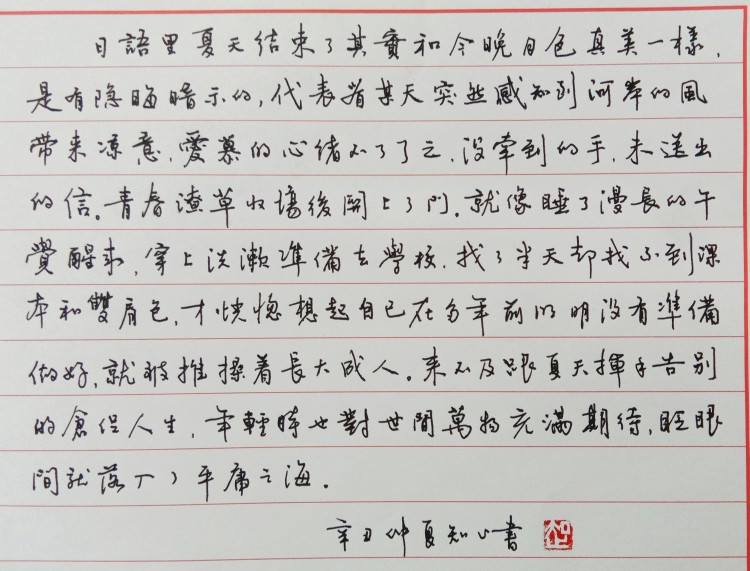 日語里夏天结束了其實和今晚月色真美一樣，
是有隐晦暗示的，代表着某天突然感知到河岸的風
帶来凉意，愛慕的心绪不了了之，没牽到的手，未送出
的信。青春潦草收場後關上了门。就像睡了漫長的午
覺醒来，穿上洗漱準備去學校，找了半天却找不到課
本和雙肩包，才恍惚想起自己在多年前的明没有準備
做好，就被推搡着長大成人。来不及跟夏天揮手告别
的倉促人生，年輕時也對世間萬物充滿期待，眨眼
間就落下了平庸之海。
辛丑仲夏知心書